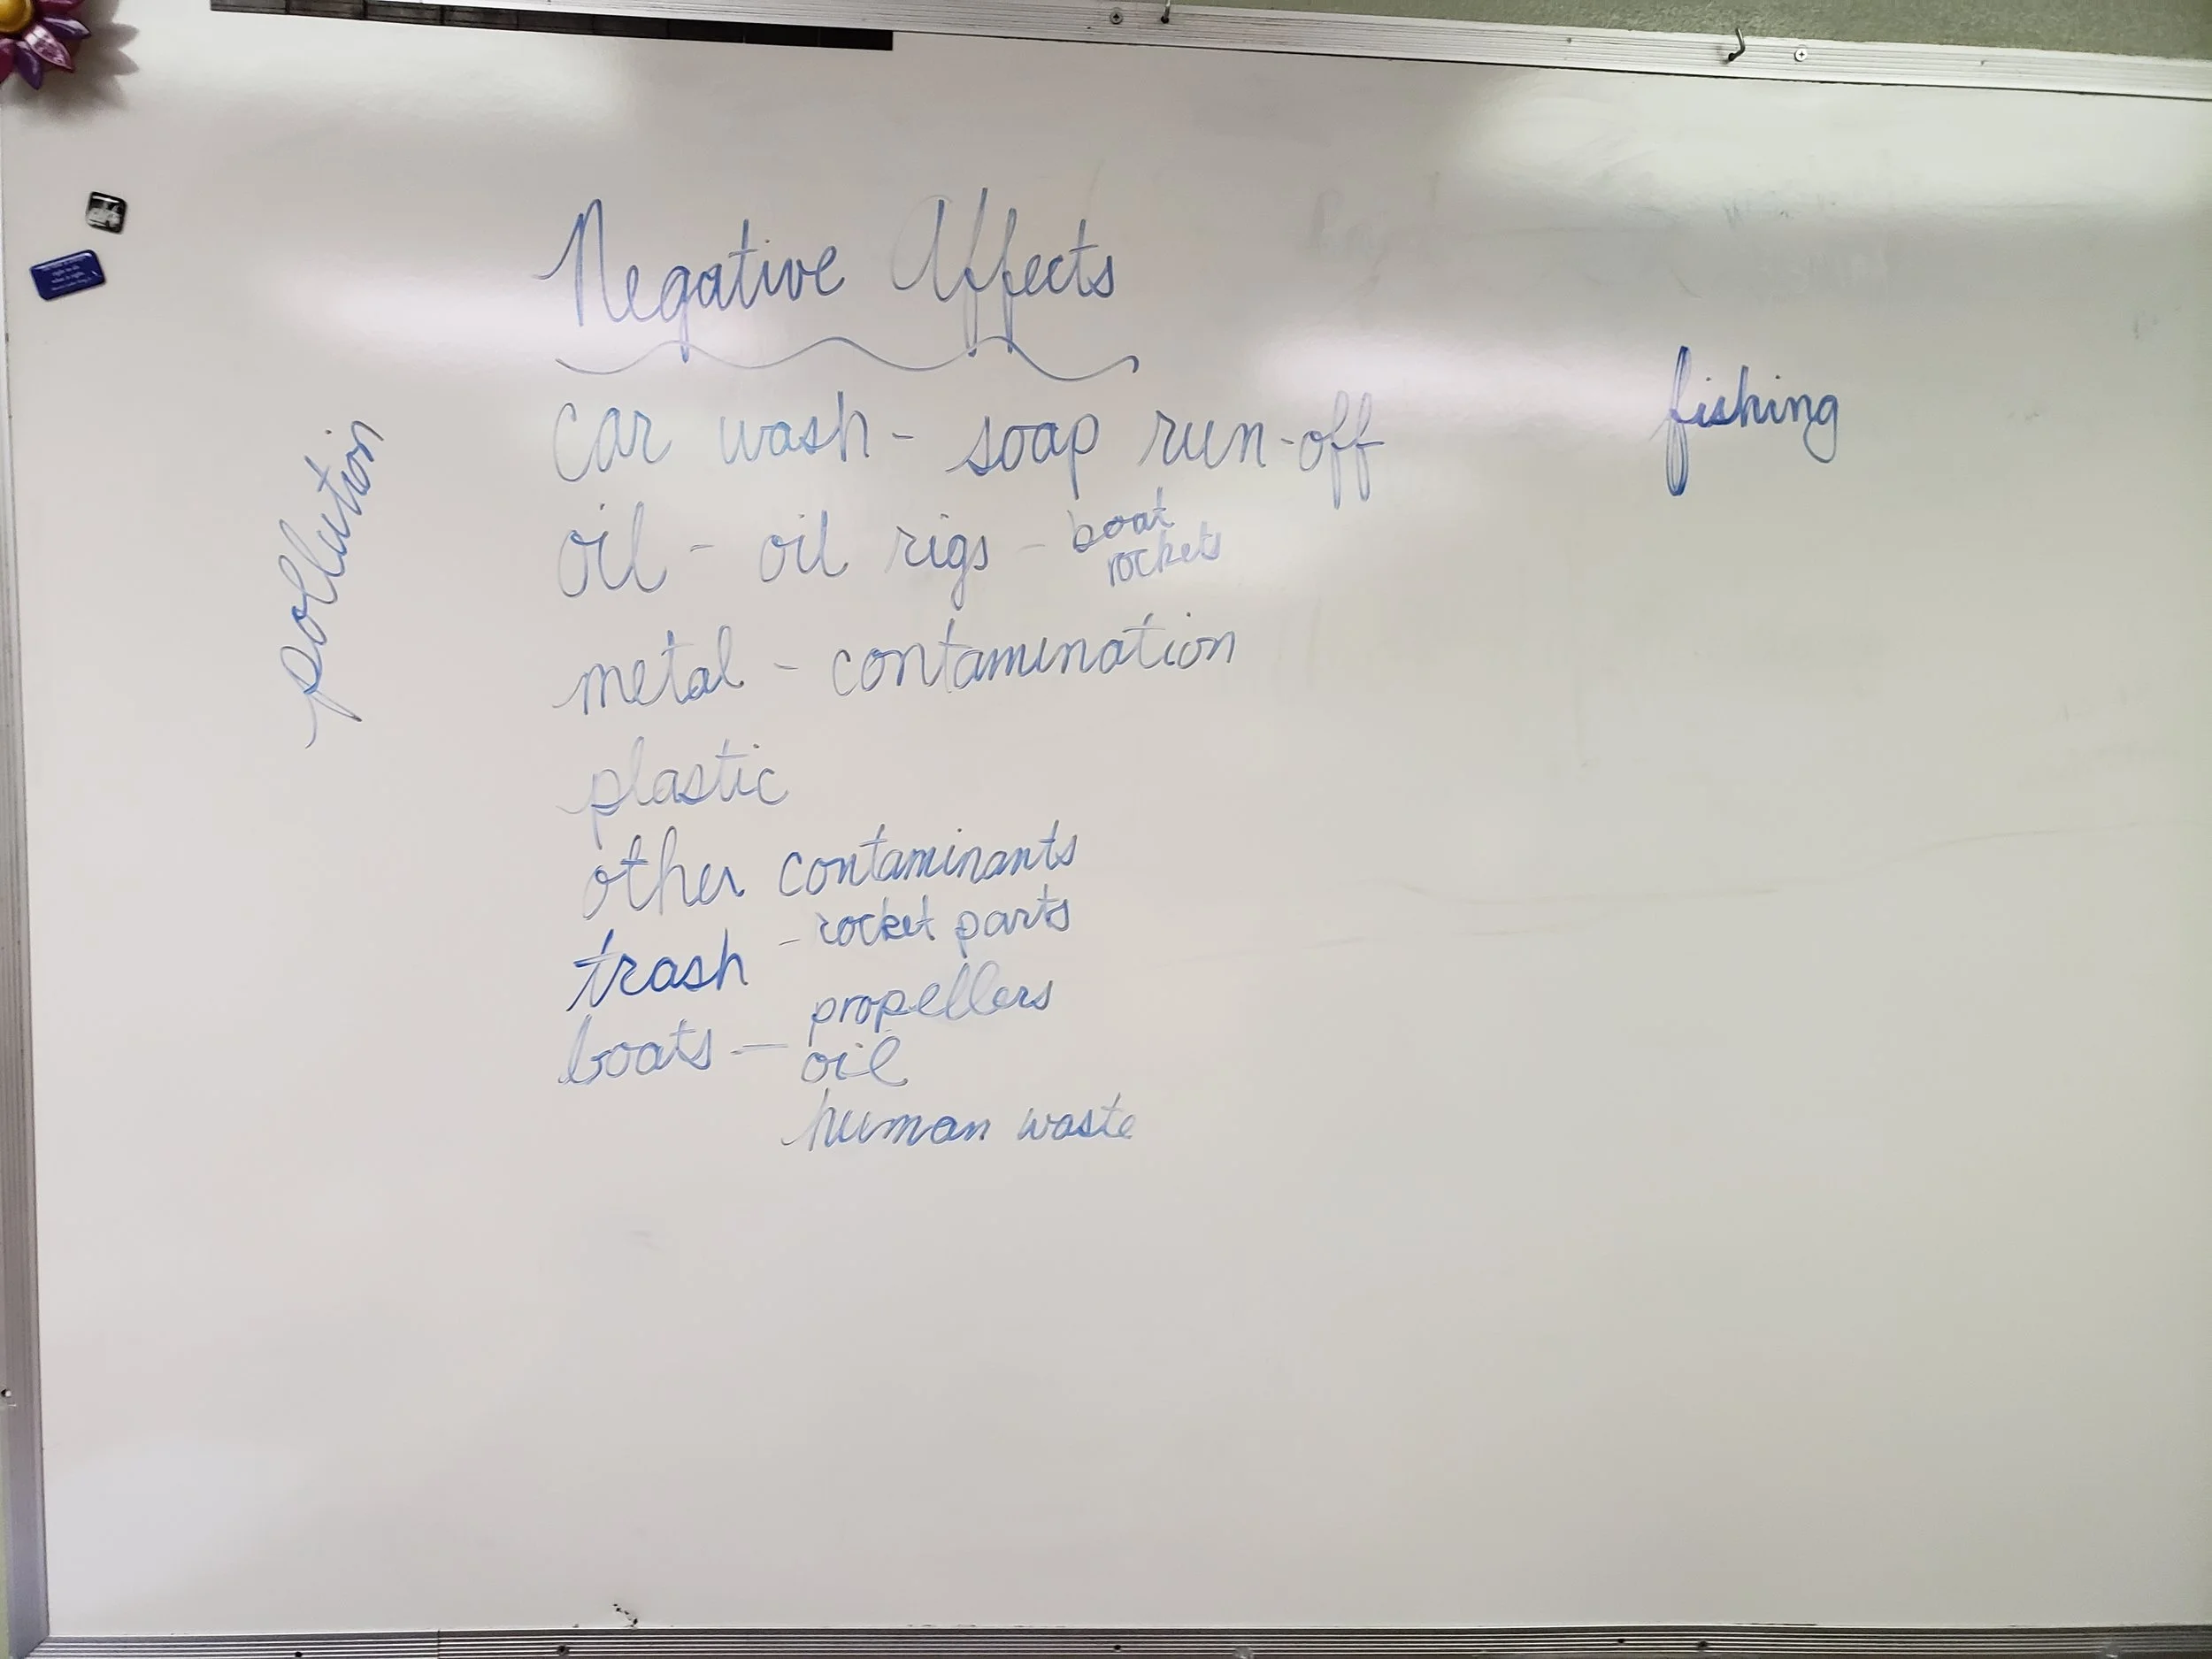 Negative Affects
pollution
car wash - soap run-off
fishing
oil - oil rigs - boat
rockets
metal - contamination
plastic
other contaminants
trash - rocket parts
propellers
boats - oil
human waste